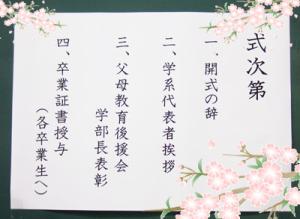 式次第
一、開式の辞
二、学系代表者挨拶
三、父母教育後援会
学部長表彰
四、卒業証書授与
（各卒業生へ）